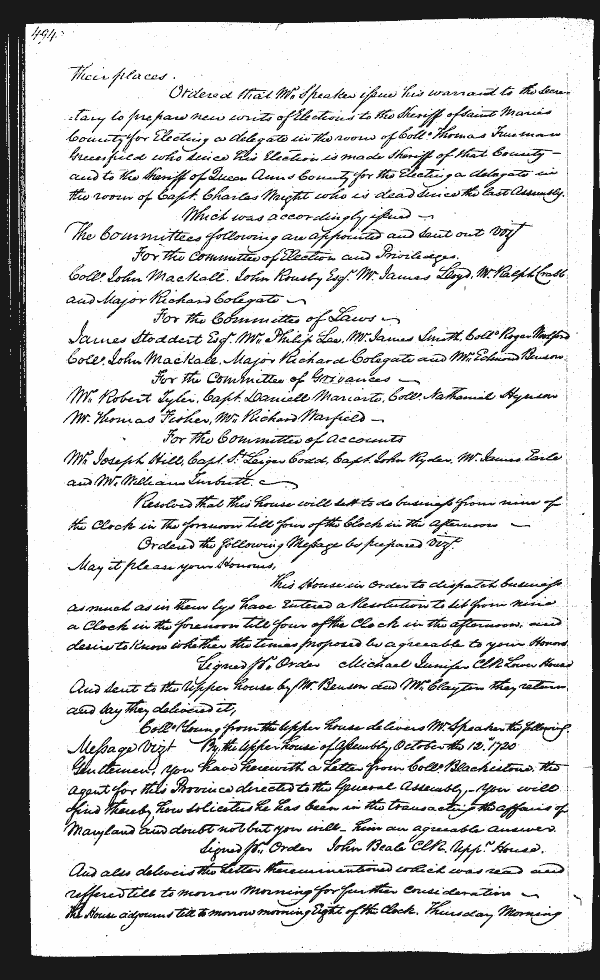 494
their places.
Ordered that Mr. Speaker issue his warrant to the Secre-
-tary to prepare new writs of Elections to the Sheriff of Saint Maries
County for Electing a delegate in the room of Collo. Thomas Trueman
Greenfield who since his Election is made Sheriff of that County
and to the Sheriff of Queen Anns County for the Electing a delegate in
the room of Capt. Charles Wright who is dead since the last Assembly.
Which was accordingly issued
The Committees following are appointed and sent out Vizt
For the Committee of Election and Priviledges.
Collo. John Mackall. John Rousby Esqr. Mr. James Lloyd, Mr. Ralph Crabb
and Major Richard Colegate
For the Committee of Laws
James Stoddert Esqr. Mr. Philip Lee, Mr. James Smith, Collo. Roger Woolford
Collo. John Mackall, Major Richard Colegate and Mr. Edward Benson
For the Committee of Grivances
Mr. Robert Tyler, Capt. Daniell Mariarte, Collo. Nathaniel Hynson
Mr. Thomas Fisher, Mr. Richard Warfield
For the Committee of Accounts
Mr. Joseph Hill, Capt. St. Leiger Codd, Capt. John Ryder, Mr. James Earle
and Mr. William Turbutt.
Resolved that this house will sett to do business from nine of
the Clock in the forenoon till four of the Clock in the afternoon
Ordered the following Message be prepared Vizt.
May it please your Honours,
This House in order to dispatch business
as much as in them lys have Entered a Resolution to sit from nine
a Clock in the forenoon till four of the Clock in the afternoon, and
desire to know whether the times proposed be agreable to your Honors
Signed pr. Order Michael Jenifer Clk Lower House
And sent to the Upper house by Mr. Benson and Mr. Clayton they return
and say they delivered it,
Collo. Young from the Upper house delivers Mr. Speaker the following
Message Vizt By the Upper house of Assembly October the 12th. 1720
Gentlemen, You have herewith a Letter from Collo. Blackestone, the
Agent for this Province directed to the General Assembly - You will
find thereby how solicitus he has been in the transacting the affairs of
Maryland and doubt not but you will - him an agreable answer
Signed pr. Order John Beale Clk. Uppr. House.
And also delivers the Letter therein mentioned which was read and
reffered till to morrow Morning for further Consideration
the House adjourns till to morrow morning Eight of the Clock. Thursday Morning